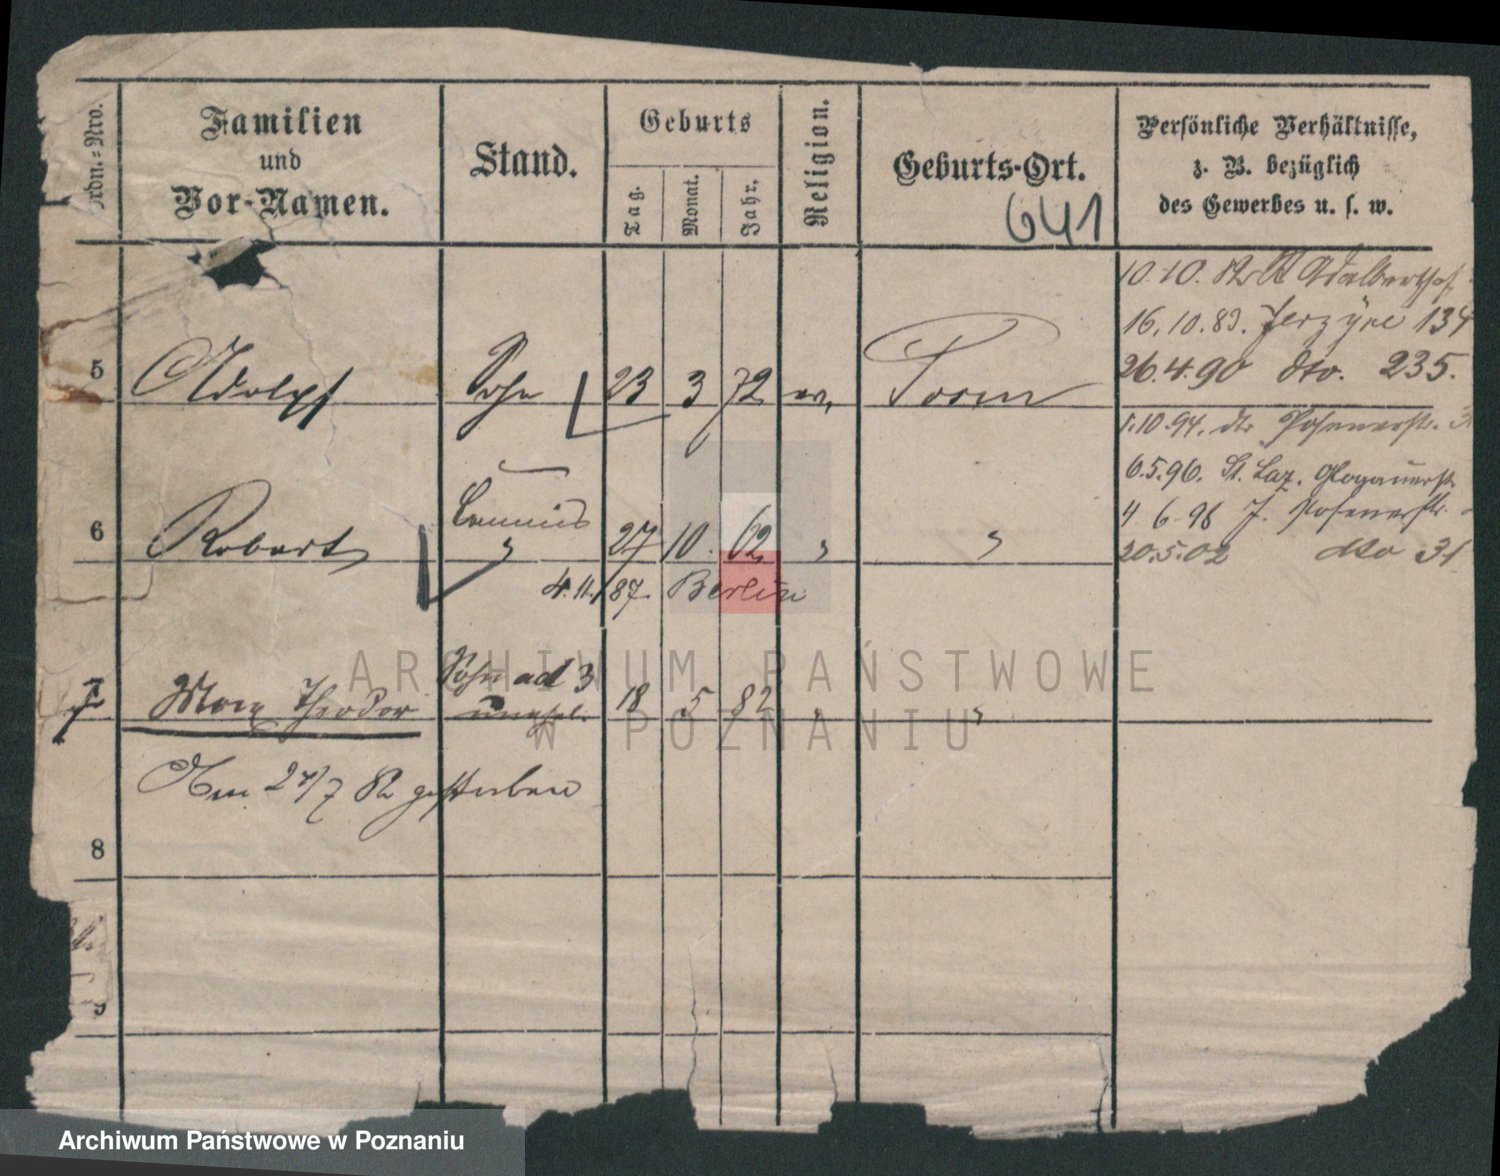 Ordn.-Nro.
Familien
und
Vor-Namen.
Stand.
Geburts
Tag.
Monat.
Jahr.
Religion.
Geburts-Ort.
641
Persönliche Verhältnisse,
z. B. bezüglich
des Gewerbes u. s. w.
10. 10. 82
16. 10. 83. Jerzyce 134
26. 4. 90 dto. 235.
5 Adolph Sohn 23 3 72 ev. Posen
1. 10. 94. dto Posenerstr. 3
6. 5. 96. St. Laz. Glogauerstr
4 6 98 J. Posenerstr.
20. 5. 02 dto 31
6 Robert " 27 10. 62 " "
4. 11. 87. Berlin
7 Max Theodor Sohn ad 3 18 5 82 " "
unehel.
Am 27/7 82 gestorben
8
9
ARCHIWUM PAŃSTWOWE
W POZNANIU
Archiwum Państwowe w Poznaniu